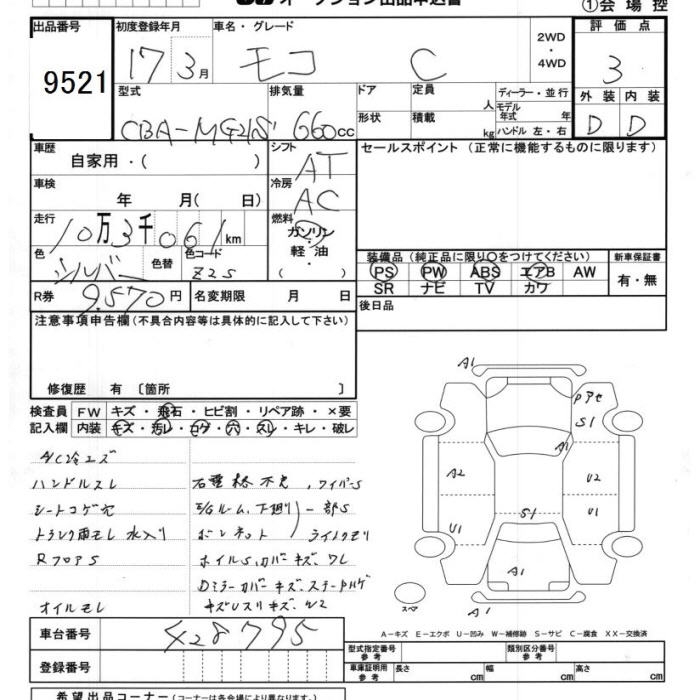 オークション出品申込書
①会場控
出品番号 初度登録年月 車名・グレード 評価点
9521 17年 3月 モコ C 2WD・4WD 3
型式 排気量 ドア 定員 人 ディーラー・並行 外装 内装
CBA-MG21S 660cc 形状 積載 kg モデル年式 年 D D
ハンドル 左・右
車歴 シフト セールスポイント (正常に機能するものに限ります)
自家用・( ) AT
車検 冷房
年 月( 日) AC
走行 燃料
10万3千061km ガソリン・軽油・( )
色 色替 色コード 装備品 (純正品に限り○をつけてください) 新車保証書
シルバー Z2S PS PW ABS エアB AW 有・無
SR ナビ TV カワ
R券 9,570円 名変期限 月 日 後日品
注意事項申告欄 (不具合内容等は具体的に記入して下さい)
修復歴 有 〔箇所 〕
検査員 FW キズ・飛石・ヒビ割・リペア跡・×要
記入欄 内装 キズ・汚レ・コゲ・穴・スレ・キレ・破レ
A1
Pアセ
S1
A1
A2 U2
U1 U1
S1
A1
A1
スペア
A/C冷エズ
ハンドルスレ , ワイパーS
シートコゲ穴 E/Gルーム、下廻り 一部S
トランク雨モレ 水入り ボンネット ライトクモリ
RフロアS ホイルS、カバーキズ、ワレ
Dミラーカバーキズ、ステーハゲ
オイルモレ
A-キズ E-エクボ U-凹み W-補修跡 S-サビ C-腐食 XX-交換済
車台番号 428795
登録番号
型式指定番号 参考 類別区分番号 参考
車庫証明用 参考 長さ cm 幅 cm 高さ cm
希望出品コーナー (コーナーは各会場により異なります。)